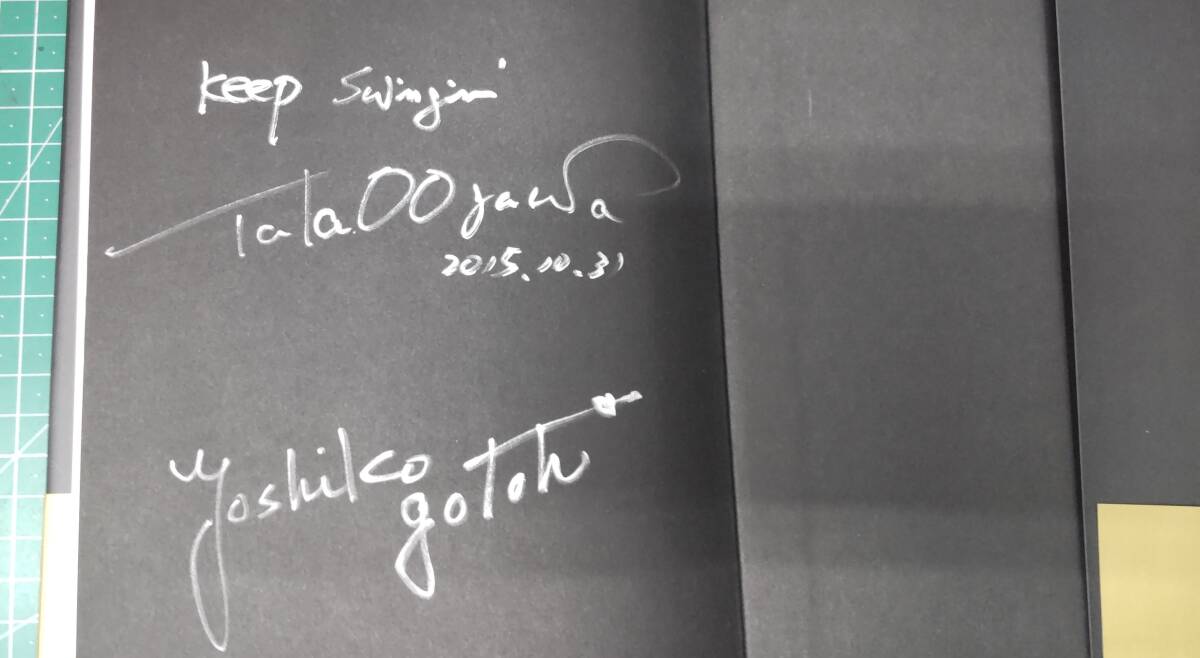 Keep Swingin'
Tala.OOyawa
2015.10.31
yoshiko
gotoh